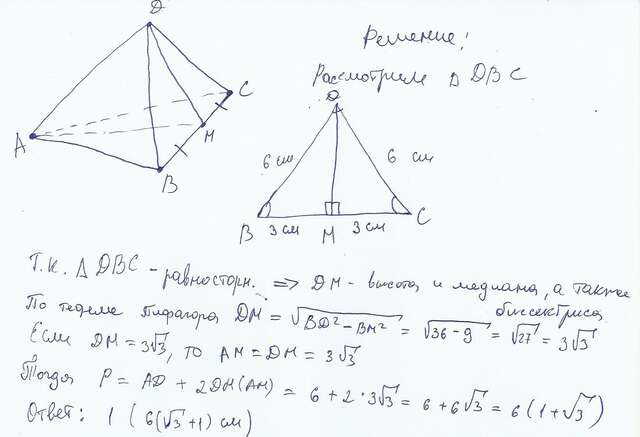 D
Решение!
Рассмотрим Δ DBC
C
A
M
B
D
6 см
6 см
B
3 см
M
3 см
C
Т.к. Δ DBC - равносторн. => DM - высота и медиана, а также биссектриса
По теореме Пифагора DM = √BD² - BM² = √36 - 9 = √27 = 3√3
Если DM = 3√3, то AM = DM = 3√3
Тогда P = AD + 2DM(AM) = 6 + 2 · 3√3 = 6 + 6√3 = 6(1+√3)
Ответ: 1 ( 6(√3 + 1) см)